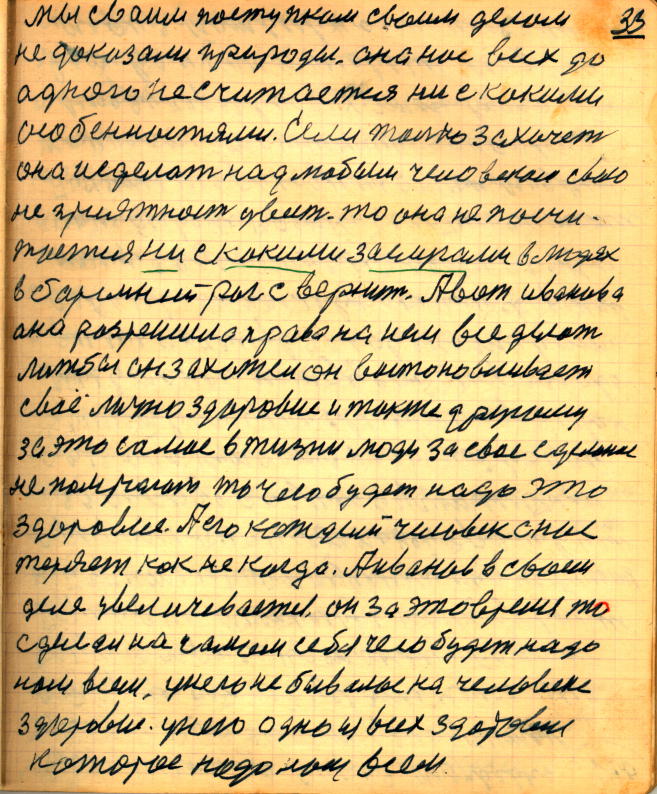 33
мы сваим поступком своим делом
не доказали природы. она нас всех до
адного не считается ни с кокими
особенностями. Если только захочет
она и сделат над любым человеком свою
не приятност увест. то она не посчи-
тается ни с кокими заслугами в людях
в бараний рог свернит. А вот иванова
она розрешила права на нем все делат
лиж бы он захотел он востоновливает
своё лично здоровие и также другому
за это самое в жизни люди за свое сделоное
не получают то чего будет надо это
здоровие. А его каждый человек сное
теряет как не когда. А иванов в своем
деле увеличевается. он за это время то
сделал на самом себя чего будет надо
нам всем, у него не бывалое на человеке
здоровие. у него одно из всех здоровие
которое надо нам всем.